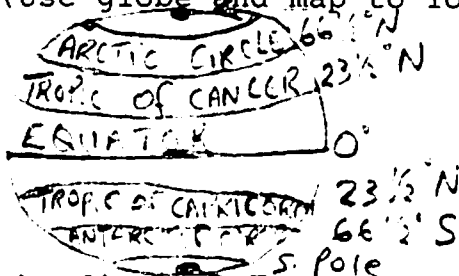 (use globe and map to lo
ARCTIC CIRCLE 66½°N
TROPIC Of CANCER 23½°N
EQUATOR 0°
TROPIC OF CAPRICORN 23½°N
ANTARCTIC CIRCLE 66½°S
S. Pole